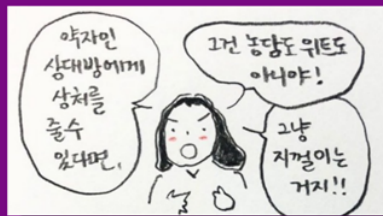 약자인
상대방에게
상처를
줄 수
있다면,
그건 농담도 위트도
아니야!
그냥
지껄이는
거지!!